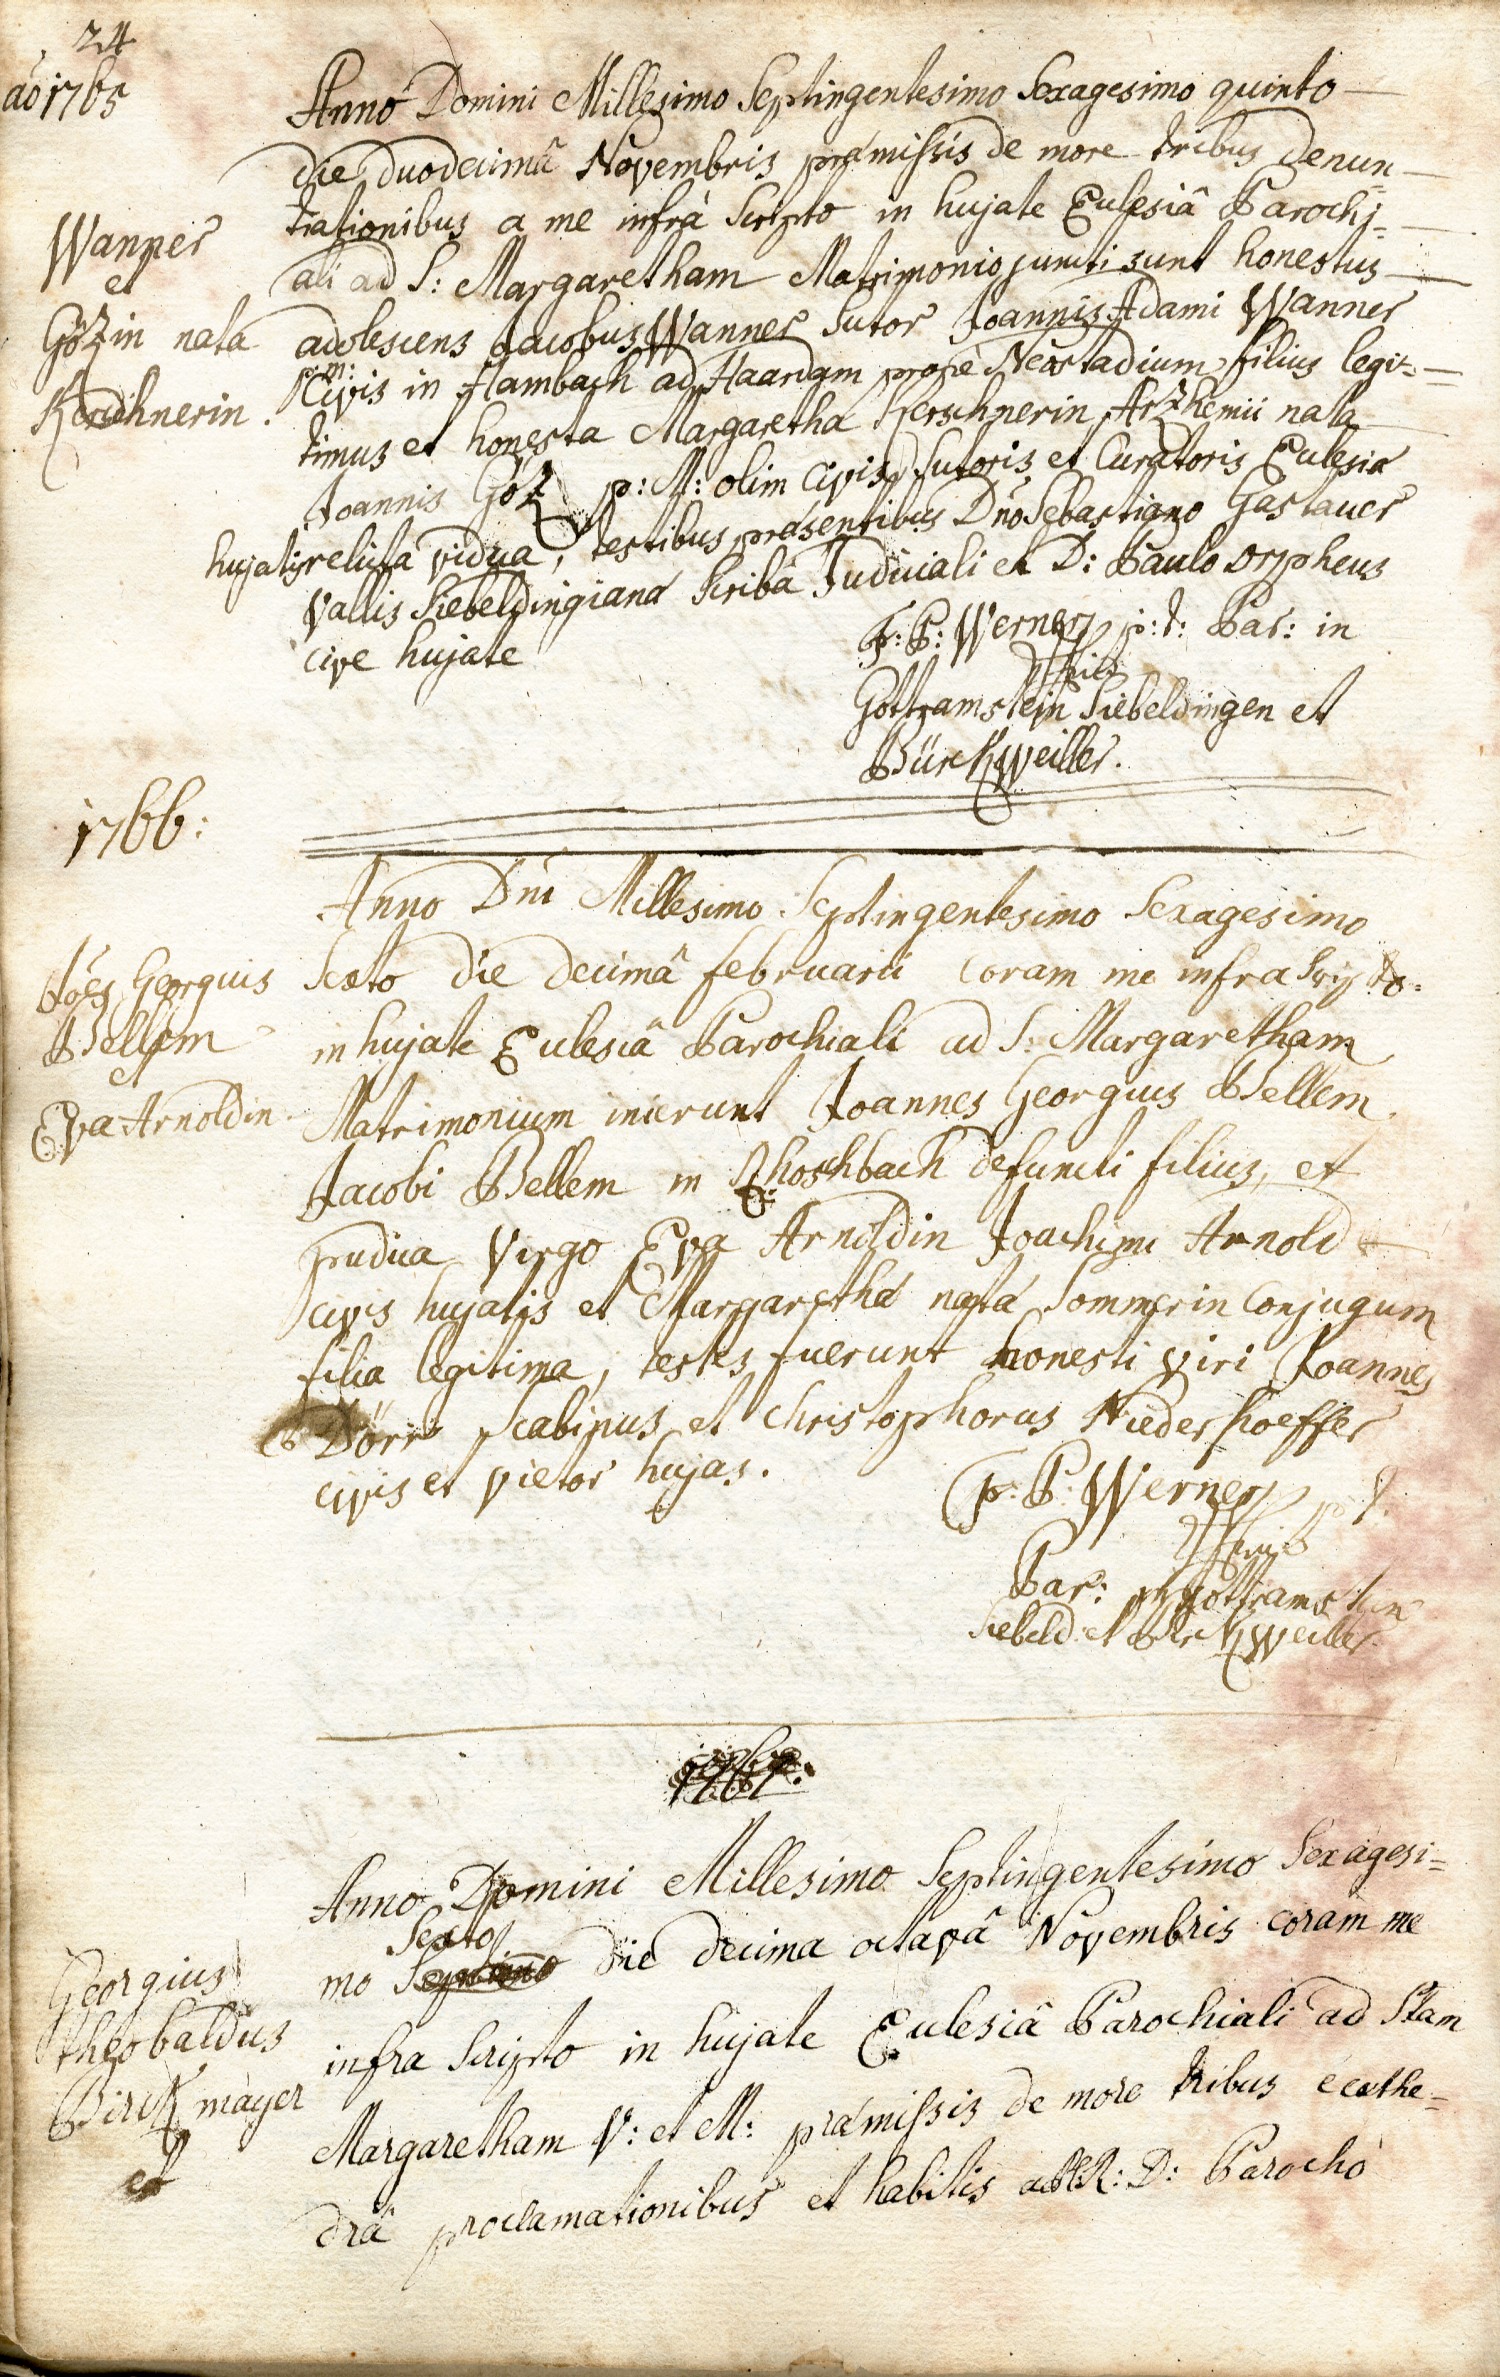 24
aō 1765
Anno Domini Millesimo Septingentesimo Sexagesimo quinto
die duodecimâ Novembris præmissis de more tribus denun-
tiationibus a me infrà scripto in hujate Eclesiâ Parochj-
ali ad S: Margaretham Matrimonio juncti sunt honestus
Wanner
et
Götzin nata
Kerschnerin.
adolescens Jacobus Wanner Sutor Joannis Adami Wanner
p: m:
Civis in Hambach ad Haardam propè Neostadium filius legi-
timus et honesta Margaretha Kerschnerin Arzhemii nata
Joannis Götz p: M: olim Civis, Sutoris, et Curatoris Eclesiæ
hujatis relicta vidua, testibus præsentibus Dño Sebastiano Gastauer
vallis Siebeldingianæ Scribâ Judiciali et D: Paulo Orpheus
cive hujate
F: P: Werner p: t: Par: in
Gottramstein Siebeldingen et
Bürckweiller.
1766:
Anno Dni Millesimo Septingentesimo Sexagesimo
Sexto die decimâ februarii coram me infra Scripto
in hujate Eclesiâ Parochiali ad S: Margaretham
Joēs Georgius
Bellem
et
Eva Arnoldin.
Matrimonium inierunt Joannes Georgius Bellem
Jacobi Bellem in Rhoshbach defuncti filius, et
pudica Virgo Eva Arnoldin Joachimi Arnold
civis hujatis et Margarethæ natæ Sommerin Conjugum
filia legitima, testes fuerunt honesti viri Joannes
Dörr Scabinus et Christophorus Niederhoeffer
civis et vietor hujas.
F: P: Werner p t.
Par: in Gottramstein
Siebeld: et Bürckweiller.
1767:
Anno Domini Millesimo Septingentesimo Sexagesi-
Sexto
mo Septimo die decima octavâ Novembris coram me
infra Scripto in hujate Eclesiâ Parochiali ad Stam
Georgius
Theobaldus
Birckmayer
et
Margaretham V: et M: præmissis de more tribus é cathe-
drâ proclamationibus et habitis ab R: D: Parocho